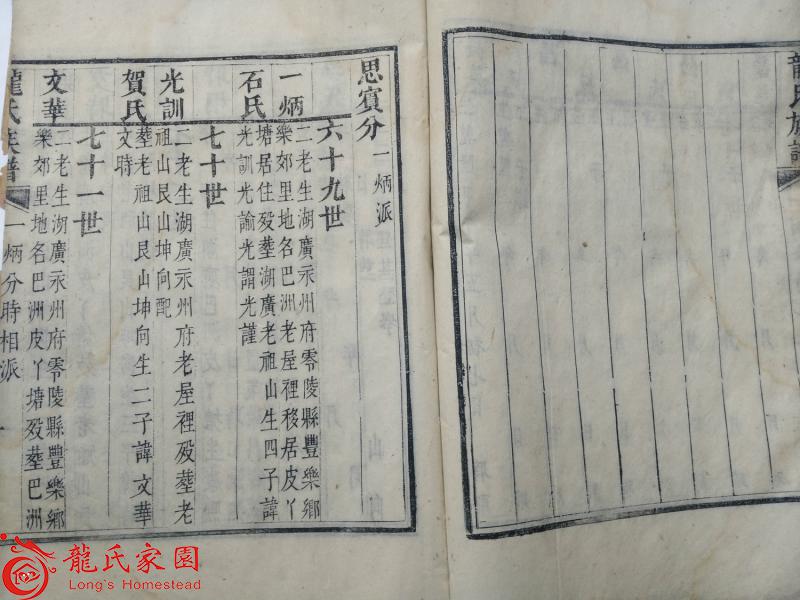 龍氏族譜
思賓分一炳派
六十九世
一炳
石氏
二老生湖廣永州府零陵縣豐樂鄉
樂郊里地名巴洲老屋裡移居皮丫
塘居住殁塟湖廣老祖山生四子諱
光訓光諭光謂光謹
七十世
光訓
賀氏
二老生湖廣永州府老屋裡殁塟老
祖山艮山坤向配
塟老祖山艮山坤向生二子諱文華
文時
七十一世
文華
二老生湖廣永州府零陵縣豐樂鄉
樂郊里地名巴洲皮丫塘殁塟巴洲
龍氏族譜
一炳分時相派
一
龍氏家園
Long's Homestead